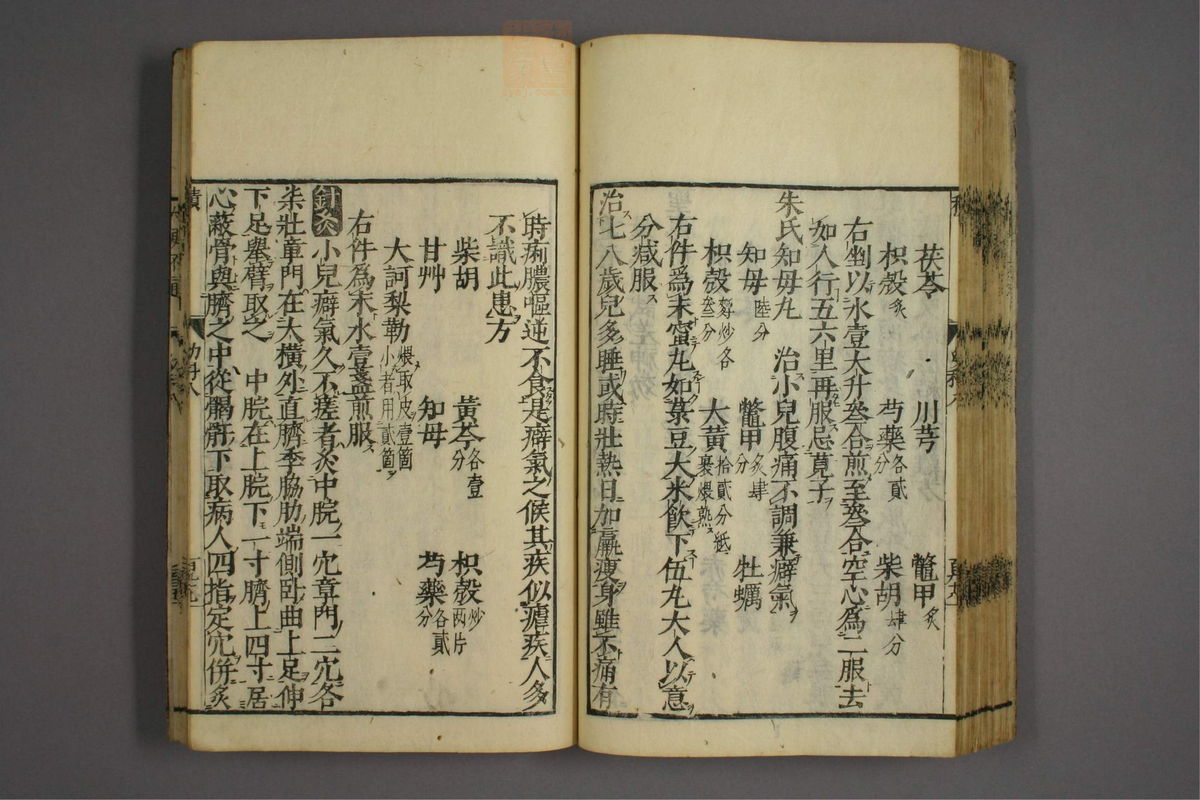 茯苓 川芎 鼈甲炙
枳殻炙 芍藥各貳分 柴胡肆分
右剉以水壹大升叁合煎至叁合空心為二服去
如人行五六里再服忌莧子
朱氏知母丸 治小兒腹痛不調兼癖氣
知母陸分 鼈甲炙肆分 牡蠣
枳殻麩炒各叁分 大黄拾貳分紙裹煨熟
右件為末蜜丸如菉豆大米飲下伍丸大人以意
分减服
治七八歲兒多睡或時壯熱日加羸瘦身雖不痛有
時痢膿嘔逆不食是癖氣之候其疾似瘧疾人多
不識此患方
柴胡 黄芩各壹分 枳殻炒兩片
甘艸 知母 芍藥各貳分
大訶梨勒煨取皮壹箇小者用貳箇
右件為末水壹盞煎服
針灸 小兒癖氣久不瘥者灸中脘一穴章門二穴各
柒壯章門在大横外直臍季脇肋端側卧曲上足伸
下足舉臂取之 中脘在上脘下一寸臍上四寸居
心蔽骨與臍之中從𩩲骬下取病人四指定穴併炙